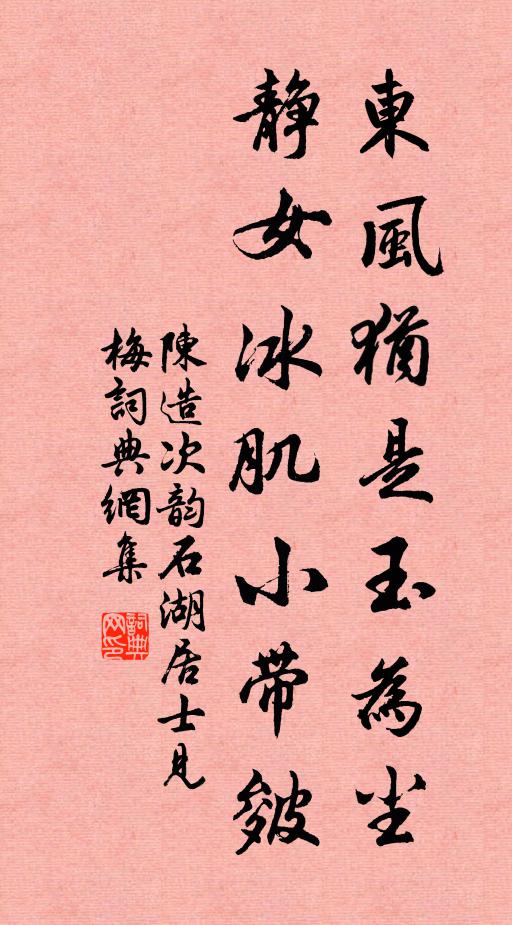 東風猶是玉為尘
静女冰肌小带皴
陳造次韵石湖居士見
梅詞典網集
詞典网印